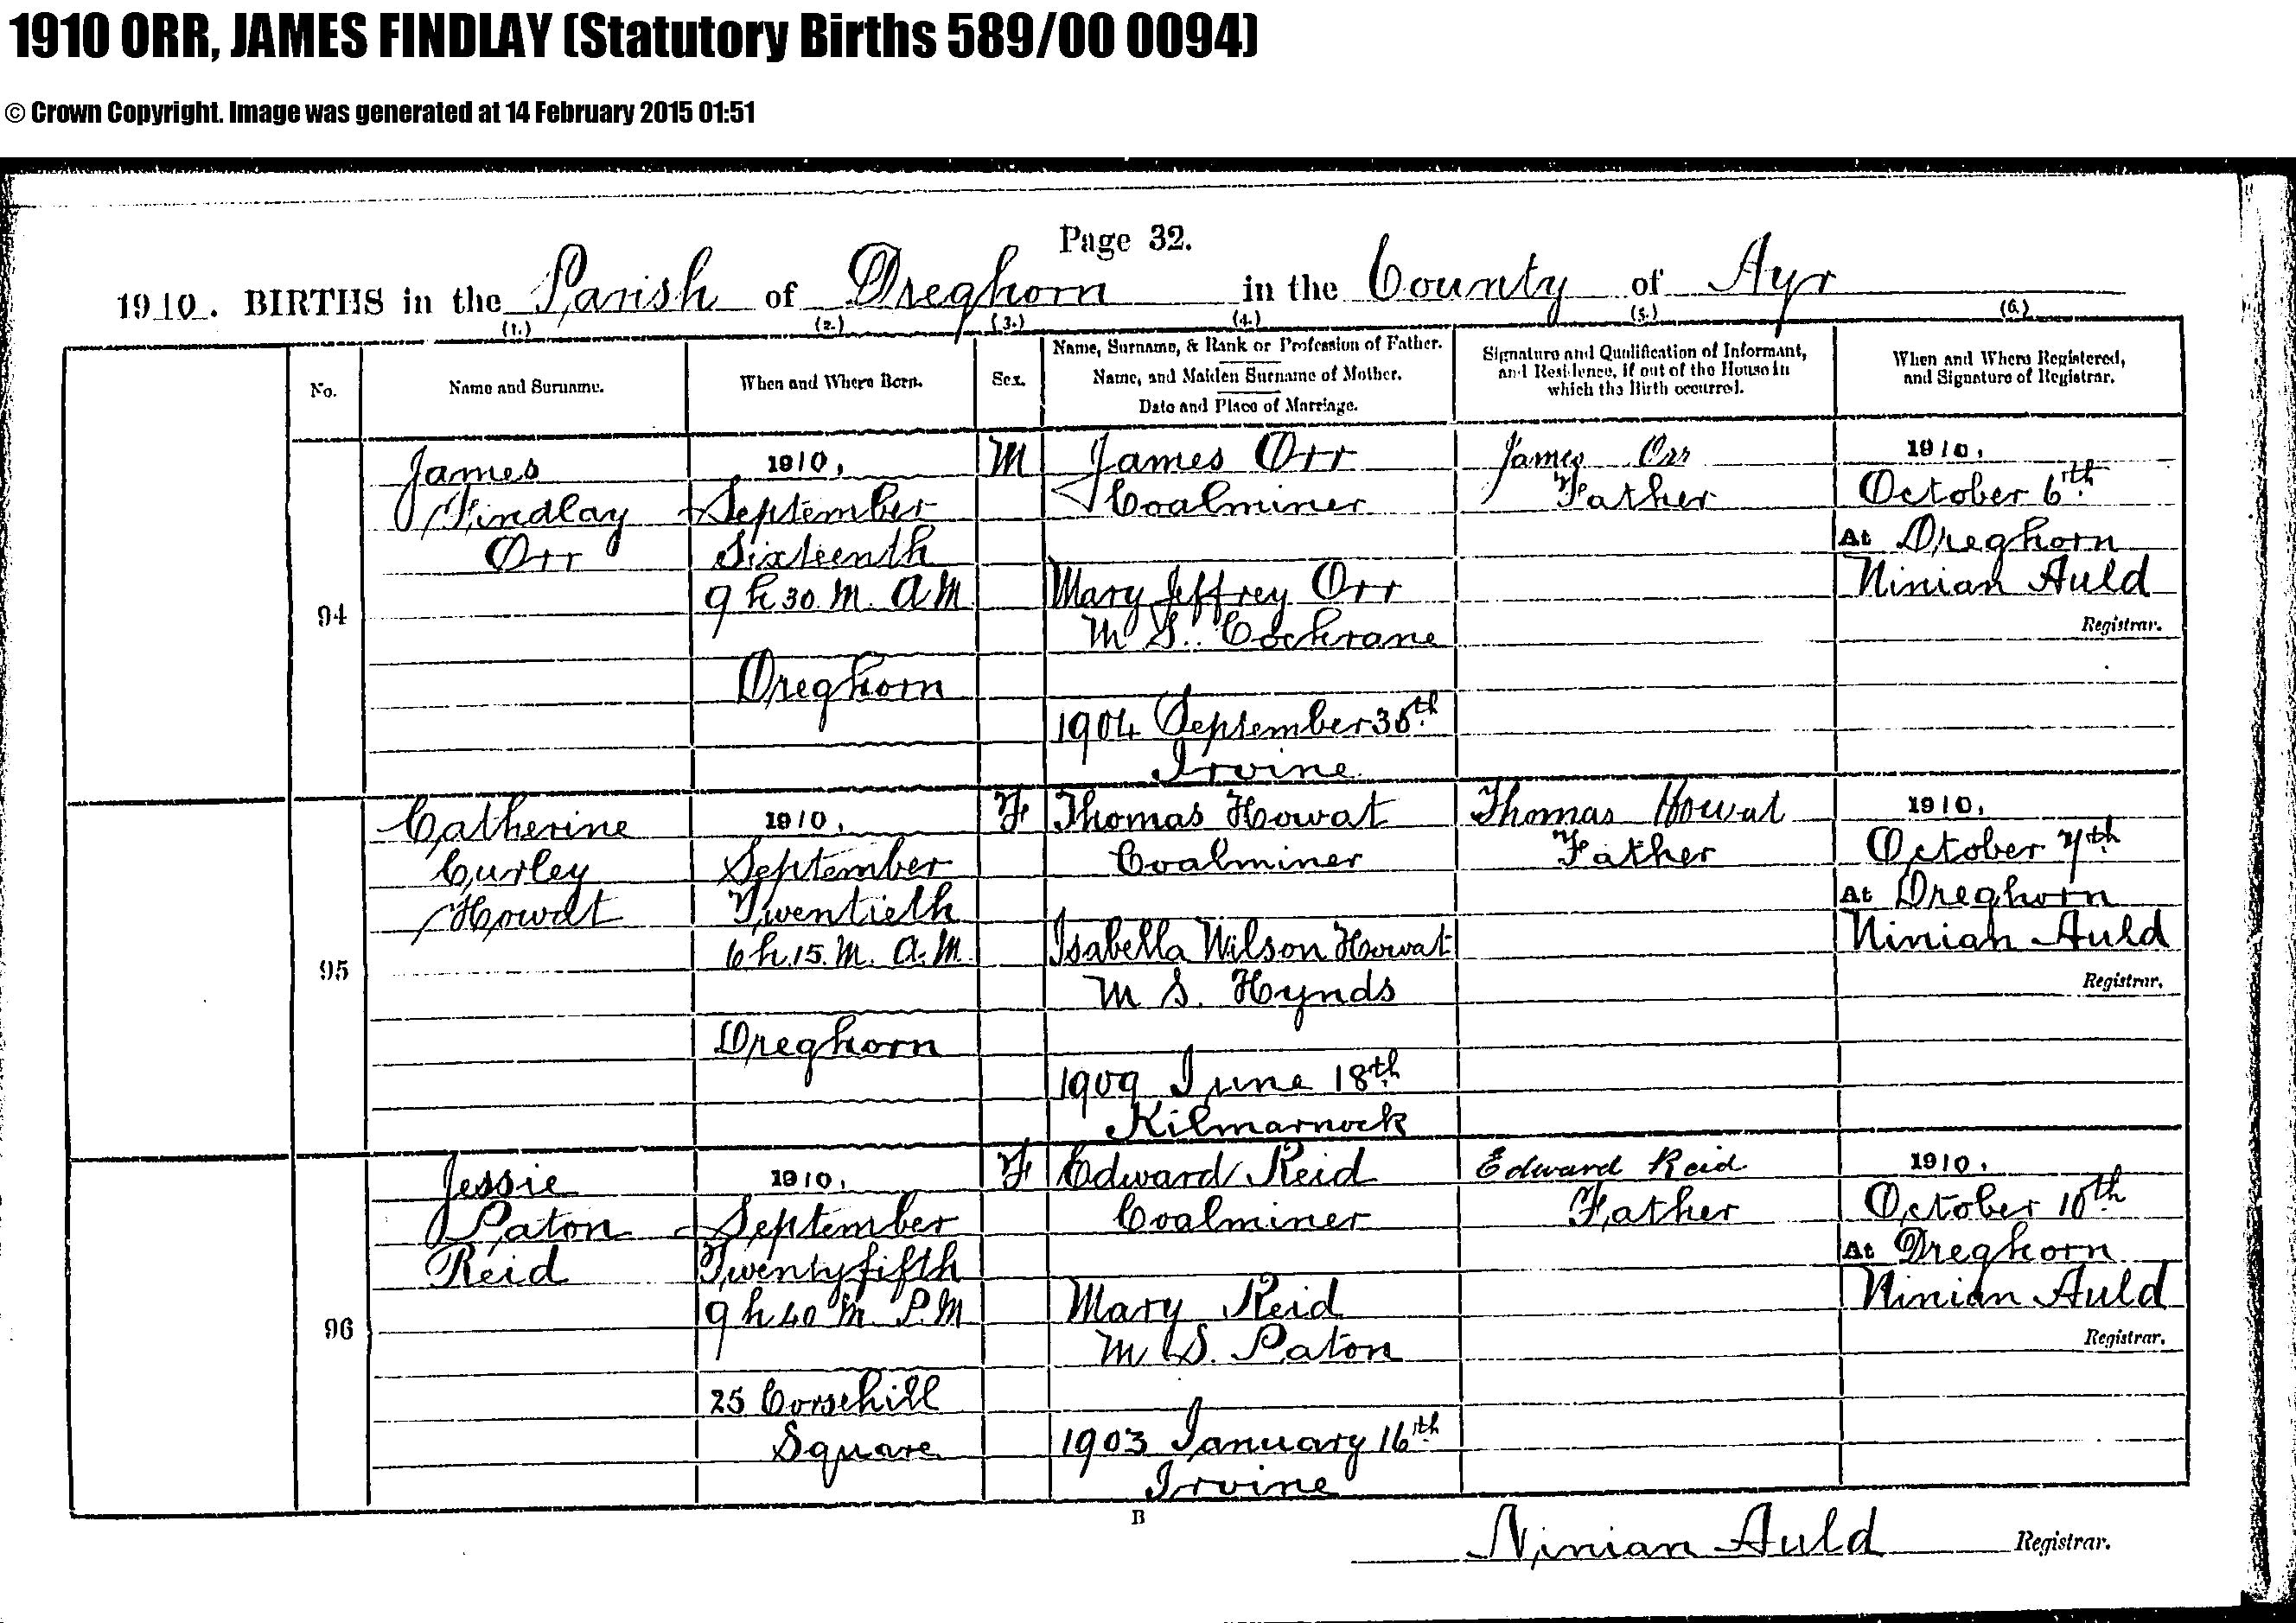 1910 ORR, JAMES FINDLAY (Statutory Births 589/00 0094)
© Crown Copyright. Image was generated at 14 February 2015 01:51
Page 32.
1910. BIRTHS in the Parish of Dreghorn in the County of Ayr
(1.) (2.) (3.) (4.) (5.) (6.)
No.
Name and Surname.
When and Where Born.
Sex.
Name, Surname, & Rank or Profession of Father.
Name, and Maiden Surname of Mother.
Date and Place of Marriage.
Signature and Qualification of Informant,
and Residence, if out of the House in
which the Birth occurred.
When and Where Registered,
and Signature of Registrar.
94
James
Findlay
Orr
1910,
September
Sixteenth
9 h 30 M. A M
Dreghorn
M
James Orr
Coalminer
Mary Jeffrey Orr
M S. Cochrane
1904 September 30th
Irvine
James Orr
Father
1910,
October 6th
At Dreghorn
Ninian Auld
Registrar.
95
Catherine
Curley
Howat
1910,
September
Twentieth
6 h. 15. M. A. M.
Dreghorn
F
Thomas Howat
Coalminer
Isabella Wilson Howat
M S. Hynds
1909 June 18th
Kilmarnock
Thomas Howat
Father
1910,
October 7th
At Dreghorn
Ninian Auld
Registrar.
96
Jessie
Paton
Reid
1910,
September
Twentyfifth
9 h 40 M. P. M
25 Corsehill
Square
F
Edward Reid
Coalminer
Mary Reid
M S. Paton
1903 January 16th
Irvine
Edward Reid
Father
1910,
October 10th
At Dreghorn
Ninian Auld
Registrar.
B
Ninian Auld Registrar.